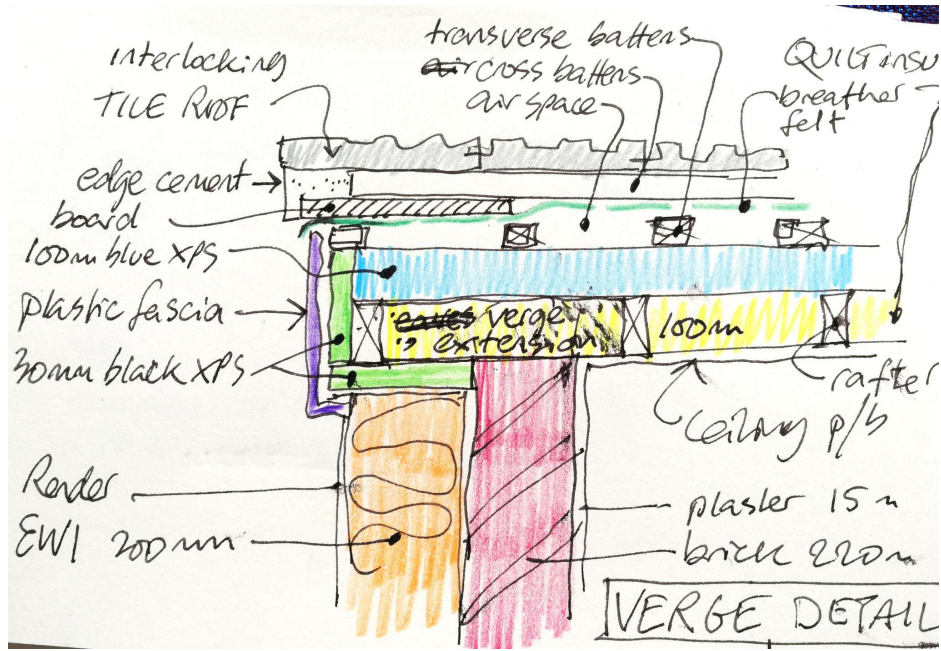 transverse battens
air cross battens
air space
QUILT INSU
breather
felt
interlocking
TILE ROOF
edge cement
board
100m blue XPS
plastic fascia
30mm black XPS
eaves verge
extension
100m
rafter
ceiling p/b
Render
EWI 200mm
plaster 15m
brick 220m
VERGE DETAIL